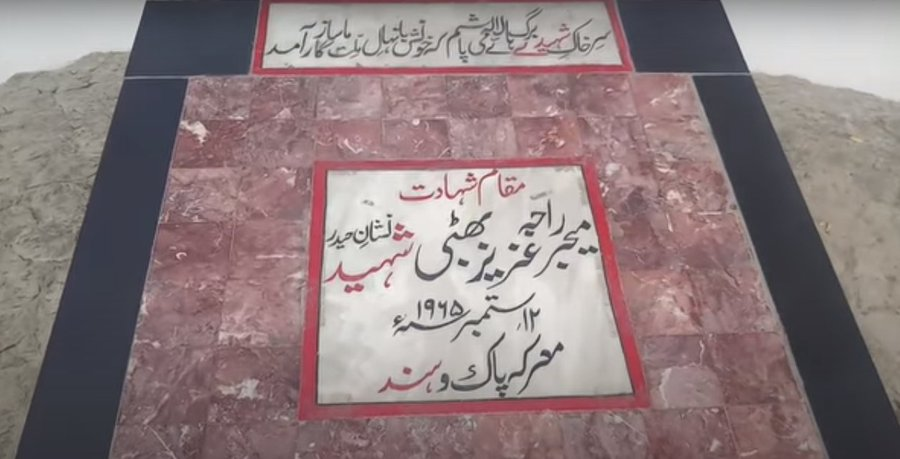 سرِ خاکِ شہیدے برگہائے لالہ می پاشم کہ خونش با نہالِ ملّتِ ما سازگار آمد
مقام شہادت
میجر راجہ عزیز بھٹی شہید نشانِ حیدر
۱۲ ستمبر ۱۹۶۵ء
معرکہ پاک و ہند